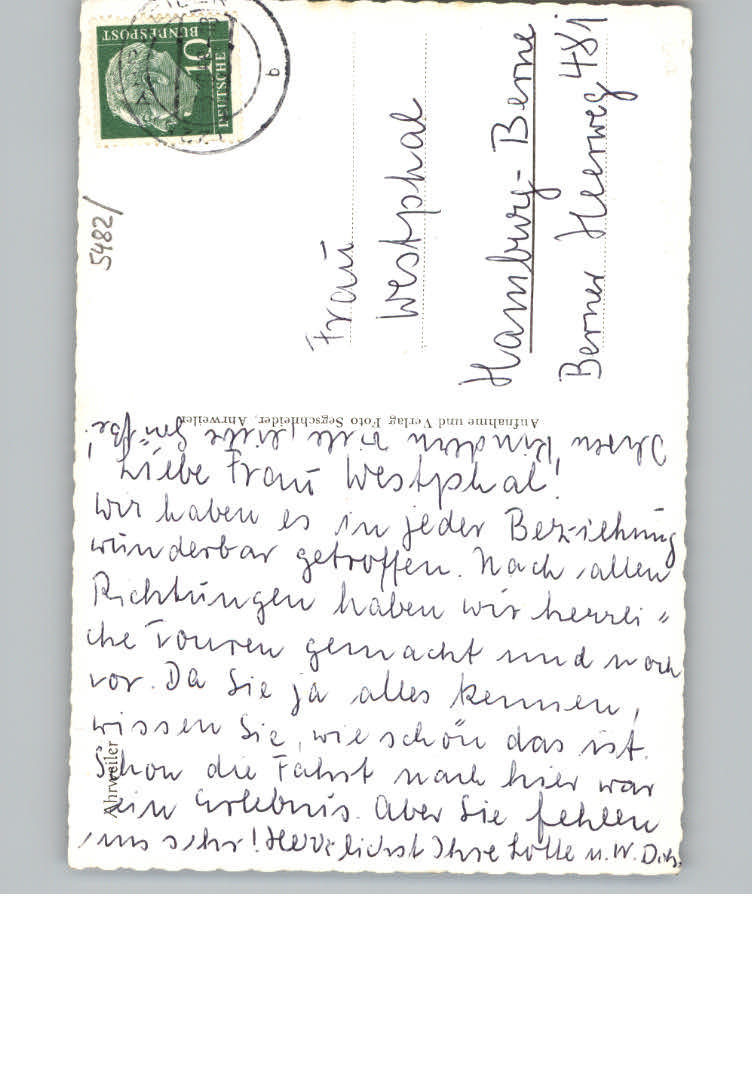 Liebe Frau Westphal!
Wir haben es in jeder Beziehung
wunderbar getroffen. Nach allen
Richtungen haben wir herrli=
che Touren gemacht und noch
vor. Da Sie ja alles kennen,
wissen Sie, wie schön das ist.
Schon die Fahrt nach hier war
ein Erlebnis. Aber Sie fehlen
uns sehr! Herzlichst Ihre Lotte u. W.
Ihren Kindern viele, liebe Grüße!
Ahrweiler
Aufnahme und Verlag Foto Segschneider, Ahrweiler
Frau
Westphal
Hamburg-Berne
Berner Heerweg 481
5482/
DEUTSCHE
BUNDESPOST
10
b